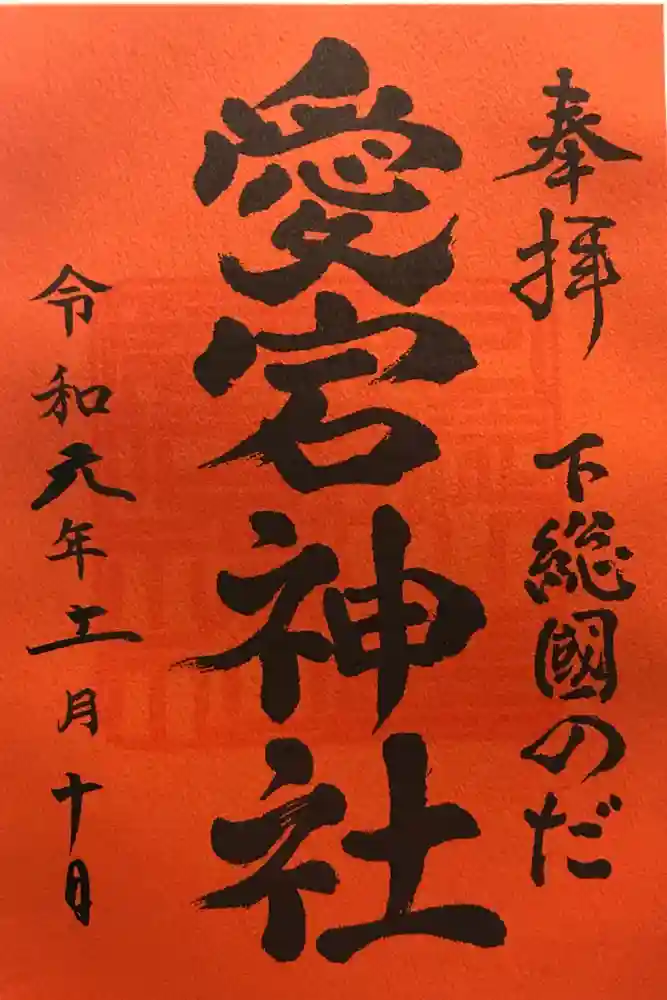 奉拝 下総國のだ
愛宕神社
令和元年十一月十日